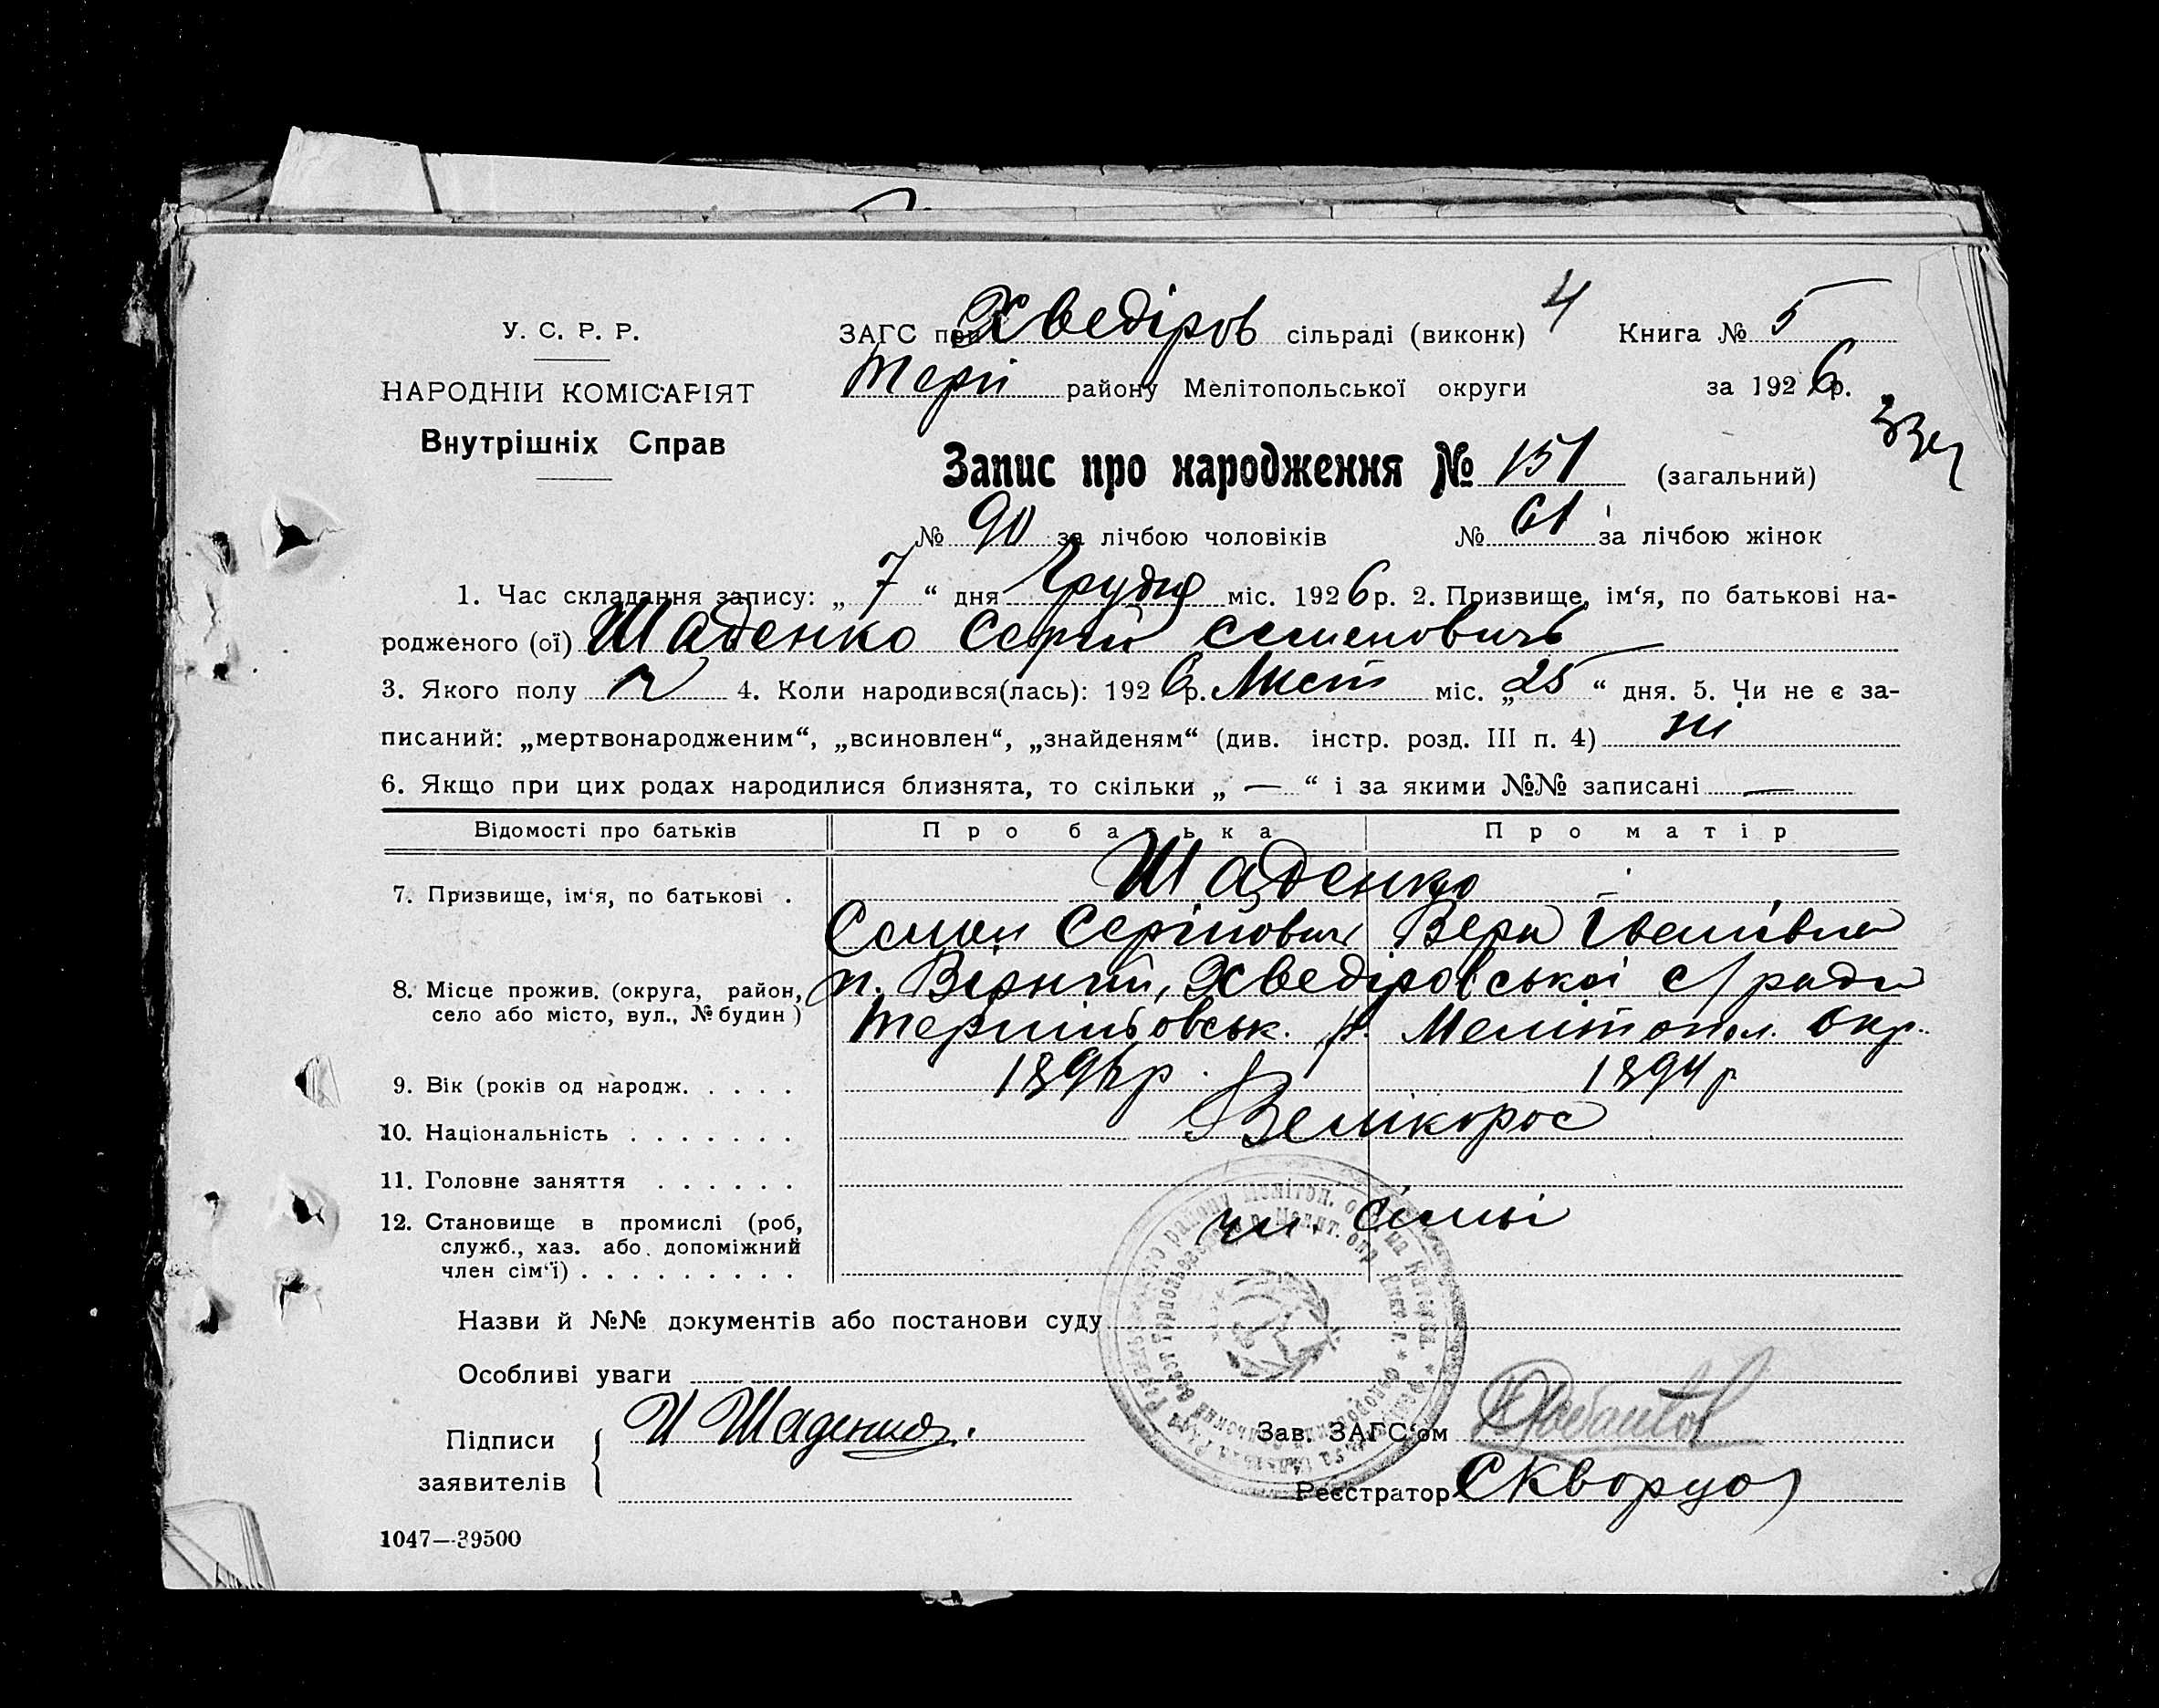 У. С. Р. Р.
НАРОДНІЙ КОМІСАРІЯТ
Внутрішніх Справ
ЗАГС при Хведіров сільраді (виконк) 4 Книга № 5
Терп району Мелітопольської округи за 1926р.
334
Запис про народження № 151 (загальний)
№ 90 за лічбою чоловіків № 61 за лічбою жінок
1. Час складання запису: „ 7 “ дня Грудня міс. 1926р. 2. Призвище, ім‘я, по батькові на-
родженого (ої) Шаденко Сергій Семеновичь
3. Якого полу ч 4. Коли народився(лась): 1926р. Лист міс. „ 25 “ дня. 5. Чи не є за-
писаний: „мертвонародженим“, „всиновлен“, „знайденям“ (див. інстр. розд. III п. 4) ні
6. Якщо при цих родах народилися близнята, то скільки „ — “ і за якими №№ записані —
Відомості про батьків Про батька Про матір
7. Призвище, ім‘я, по батькові . Шаденко
Семен Сергійович Вера Іванівна
8. Місце прожив. (округа, район, п. Вірний, Хведіровської с/ради
село або місто, вул., № будин) р. Мелітопол. Окр.
9. Вік (років од народж. . . . . 1894р
10. Національність . . . . . . . Велікорос
11. Головне заняття . . . . . .
12. Становище в промислі (роб, чл. сімьі
служб., хаз. або допоміжний
член сім‘ї) . . . . . . . . .
Назви й №№ документів або постанови суду
Особливі уваги
Підписи
заявителів
И Шаденко.
Зав. ЗАГС‘ом
Реєстратор Скворцов
1047—39500